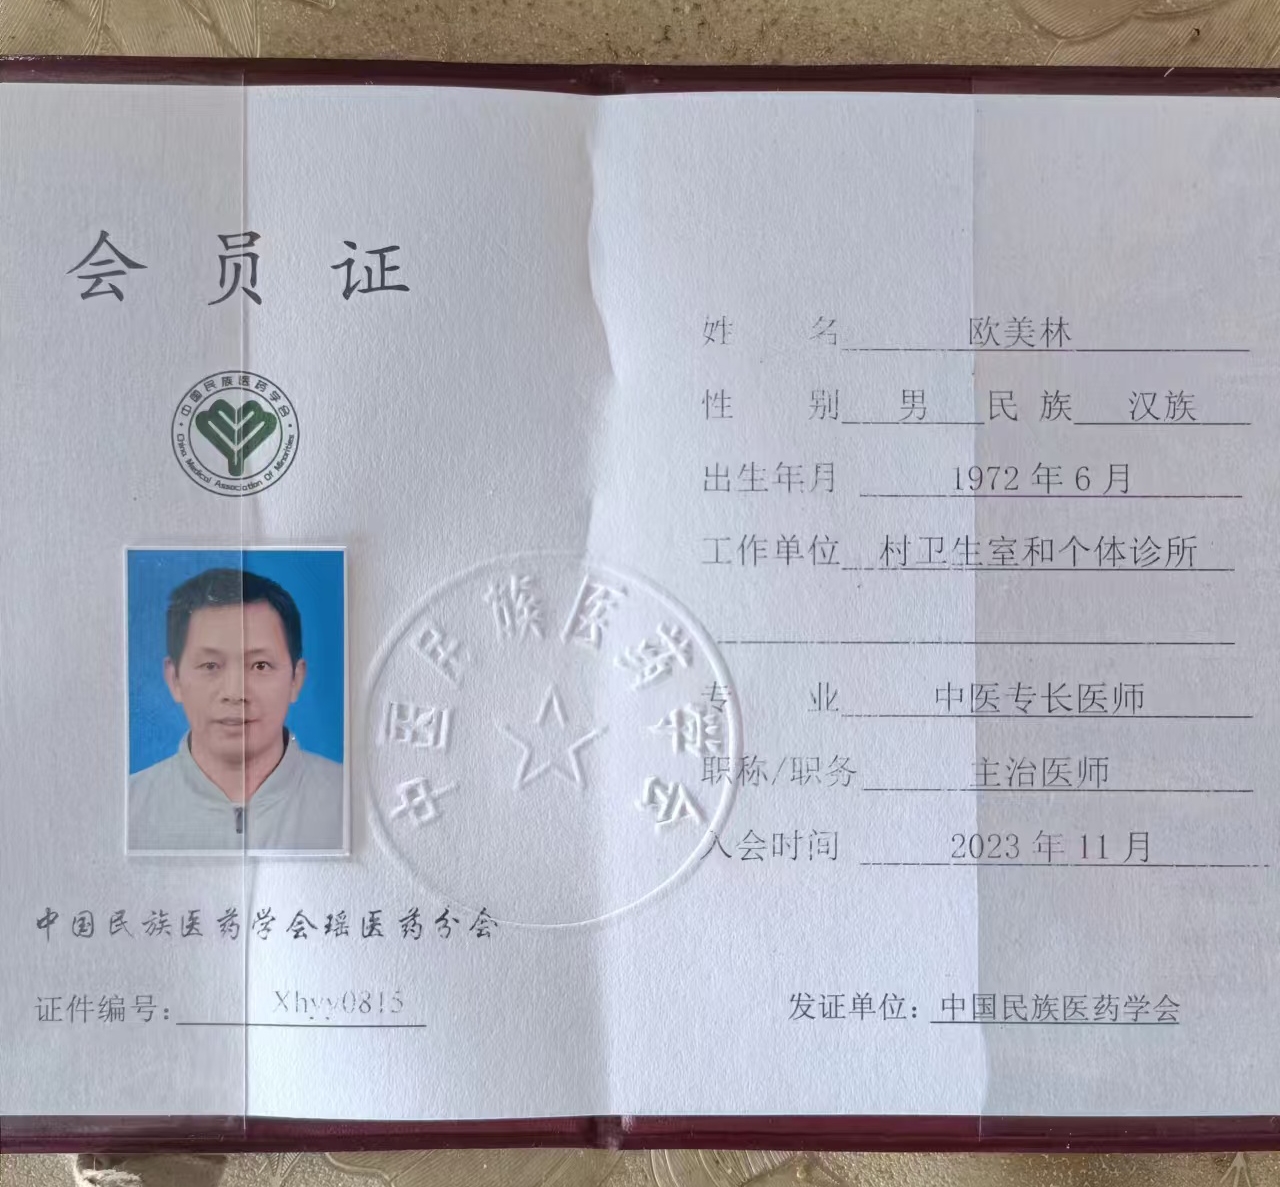 会员证
中国民族医药学会
China Medical Association Of Minorities
中国民族医药学会瑶医药分会
证件编号：Xhyy0815
中国民族医药学会
姓名 欧美林
性别 男 民族 汉族
出生年月 1972年6月
工作单位 村卫生室和个体诊所
专业 中医专长医师
职称/职务 主治医师
入会时间 2023年11月
发证单位：中国民族医药学会